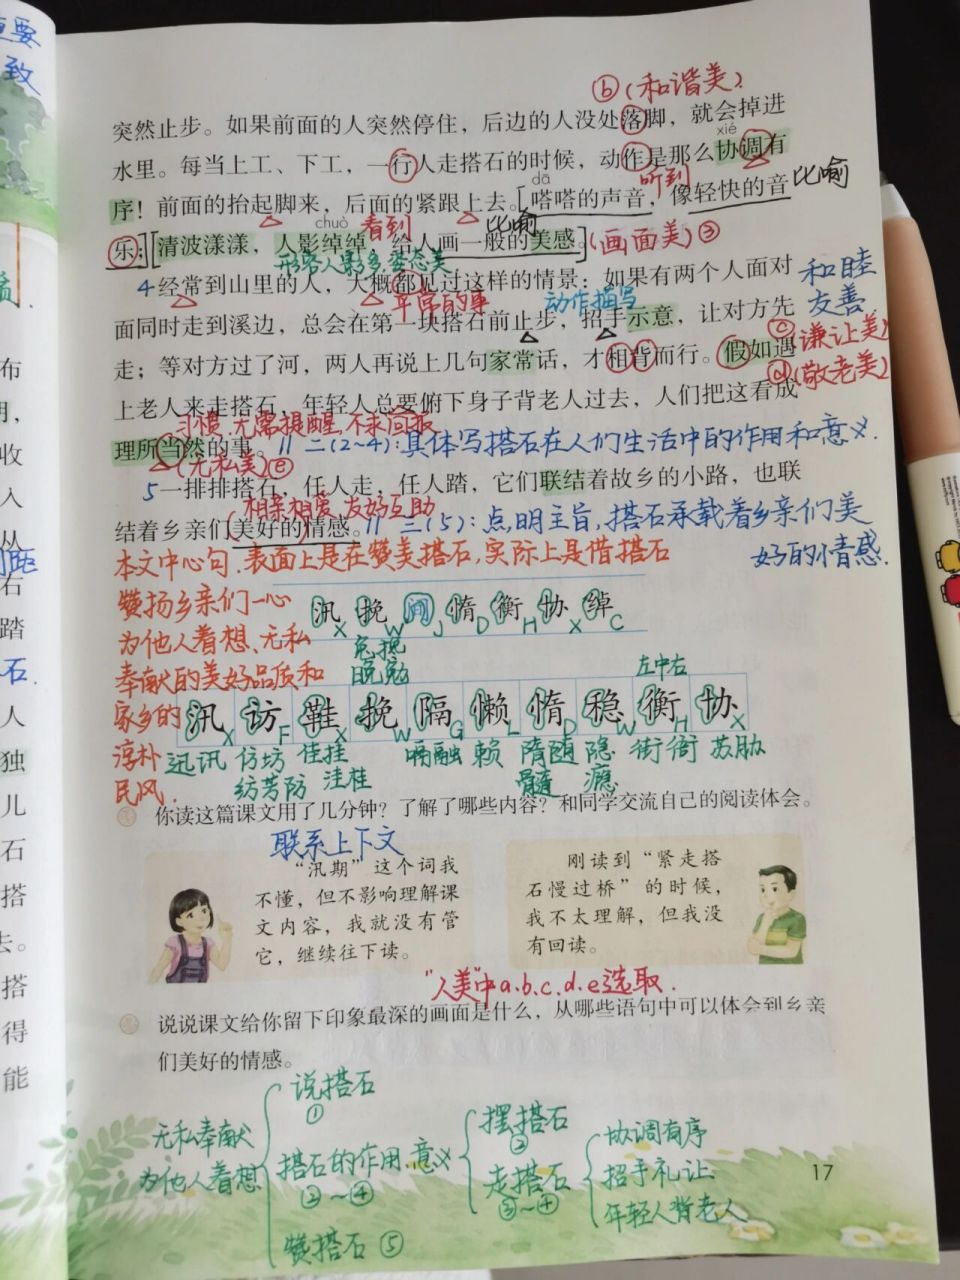 重要
致
ⓑ(和谐美)
突然止步。如果前面的人突然停住，后边的人没处落脚，就会掉进
xié
水里。每当上工、下工，一行人走搭石的时候，动作是那么协调有
dā
听到
比喻
序！前面的抬起脚来，后面的紧跟上去。[嗒嗒的声音，像轻快的音
chuò
看到
比喻
乐；][清波漾漾，人影绰绰，给人画一般的美感。](画面美)ⓐ
形容人影多,姿态美
4
经常到山里的人，大概都见过这样的情景：如果有两个人面对
和睦
友善
平常的事
动作描写
面同时走到溪边，总会在第一块搭石前止步，招手示意，让对方先
ⓒ(谦让美)
走；等对方过了河，两人再说上几句家常话，才相背而行。假如遇
ⓓ(敬老美)
上老人来走搭石，年轻人总要俯下身子背老人过去，人们把这看成
习惯.无需提醒,不求回报
理所当然的事。// 二(2~4):具体写搭石在人们生活中的作用和意义.
(无私美)ⓔ
5
一排排搭石，任人走，任人踏，它们联结着故乡的小路，也联
相亲相爱,友好互助
结着乡亲们美好的情感。// 三(5):点明主旨,搭石承载着乡亲们美
好的情感.
本文中心句.表面上是在赞美搭石,实际上是借搭石
赞扬乡亲们一心
为他人着想、无私
奉献的美好品质和
家乡的
淳朴
民风.
汛 挽 间 惰 衡 协 绰
X W J D H X C
免搀
晚勉
左中右
汛 访 鞋 挽 隔 懒 惰 稳 衡 协
X F X W G L D W H X
迅讯 仿坊 佳挂 嗝融 赖 隋随 隐 街衔 苏胁
纺芳防 洼桂 髓 瘾
你读这篇课文用了几分钟？了解了哪些内容？和同学交流自己的阅读体会。
联系上下文
“汛期”这个词我
不懂，但不影响理解课
文内容，我就没有管
它，继续往下读。
刚读到“紧走搭
石慢过桥”的时候，
我不太理解，但我没
有回读。
“人美”中a.b.c.d.e选取.
说说课文给你留下印象最深的画面是什么，从哪些语句中可以体会到乡亲
们美好的情感。
无私奉献
为他人着想
说搭石
①
搭石的作用.意义
②~④
赞搭石⑤
摆搭石
②
走搭石
③~④
协调有序
招手礼让
年轻人背老人
17
布
明，
收
入
从
间距
石
踏
石.
人
独
儿
石
搭
去。
搭
得
能